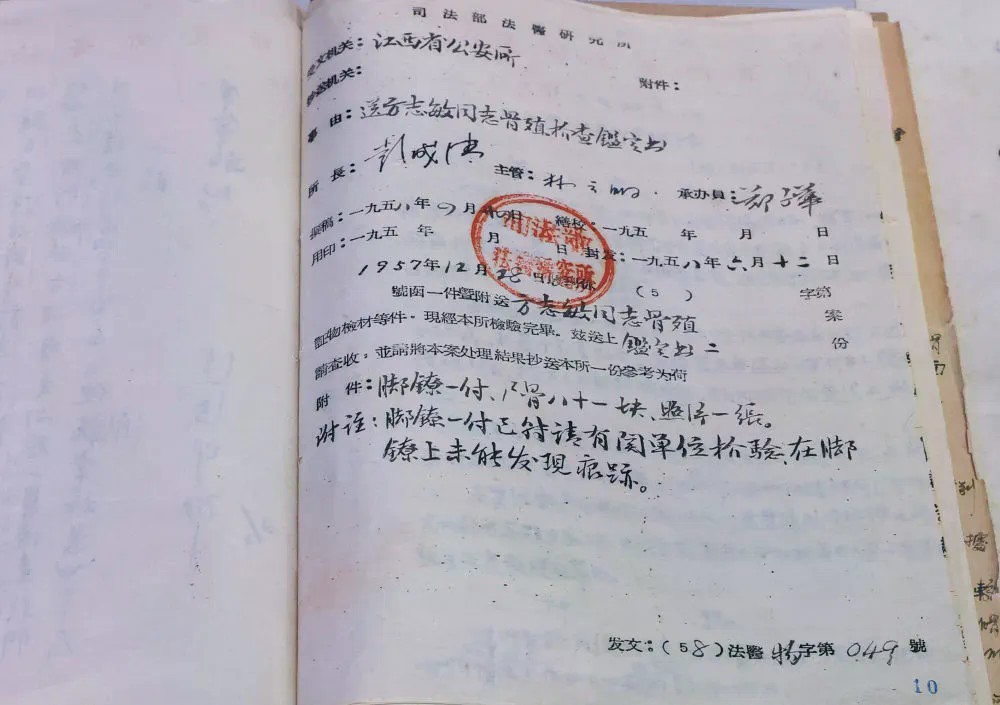 司法部法醫研究所
发文机关：江西省公安所
抄送机关：
附件：
事由：送方志敏同志骨殖检查鑑定书
所長：
主管：林
承办員：鄭子華
撰稿：一九五八年四月 日
繕校：一九五 年 月 日
用印：一九五 年 月 日
封发：一九五八年六月十二日
司法部
法醫研究所
1957年12月28日 （5 ） 字第
號函一件暨附送方志敏同志骨殖 案
証物檢材等件。現經本所檢驗完畢。茲送上鑑定书二 份
請查收，並請將本案处理結果抄送本所一份參考为荷
附件：脚镣一付、尸骨八十一块、照片一張。
附註：脚镣一付已特请有関單位检驗、在脚
镣上未能发现痕跡。
发文：（58）法醫特字第049號
10